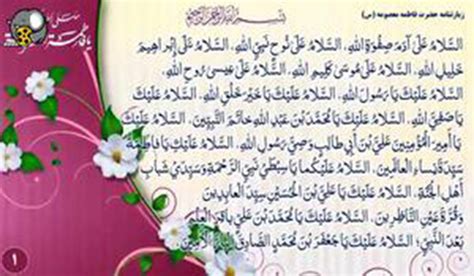 زیارتنامه حضرت فاطمه معصومه (س)
بِسْمِ اللهِ الرَّحْمنِ الرَّحیمِ
یا فاطمة
اَلسَّلامُ عَلى آدَمَ صَفْوَةِ اللهِ، اَلسَّلامُ عَلى نُوحٍ نَبِىِّ اللهِ، اَلسَّلامُ عَلى اِبْراهیمَ
خَلیلِ اللهِ، اَلسَّلامُ عَلى مُوسى کَلیمِ اللهِ، اَلسَّلامُ عَلى عیسى رُوحِ اللهِ،
اَلسَّلامُ عَلَیْکَ یا رَسُولَ اللهِ، اَلسَّلامُ عَلَیْکَ یا خَیْرَ خَلْقِ اللهِ، اَلسَّلامُ عَلَیْکَ
یا صَفِىَّ اللهِ، اَلسَّلامُ عَلَیْکَ یا مُحَمَّدَ بْنَ عَبْدِ اللهِ خاتَمَ النَّبِیّینَ، اَلسَّلامُ عَلَیْکَ
یا اَمیرَ الْمُؤْمِنینَ عَلِىَّ بْنَ اَبى طالِبٍ وَصِىَّ رَسُولِ اللهِ، اَلسَّلامُ عَلَیْکِ یا فاطِمَةُ
سَیِّدَةَ نِساءِ الْعالَمینَ، اَلسَّلامُ عَلَیْکُما یا سِبْطَىْ نَبِىِّ الرَّحْمَةِ وَ سَیِّدَىْ شَبابِ
اَهْلِ الْجَنَّةِ، اَلسَّلامُ عَلَیْکَ یا عَلِىَّ بْنَ الْحُسَیْنِ سَیِّدَ الْعابِدینَ
وَ قُرَّةَ عَیْنِ النّاظِرینَ، اَلسَّلامُ عَلَیْکَ یا مُحَمَّدَ بْنَ عَلِىٍّ باقِرَ الْعِلْمِ
بَعْدَ النَّبِىِّ، اَلسَّلامُ عَلَیْکَ یا جَعْفَرَ بْنَ مُحَمَّدٍ الصّادِقَ
۱